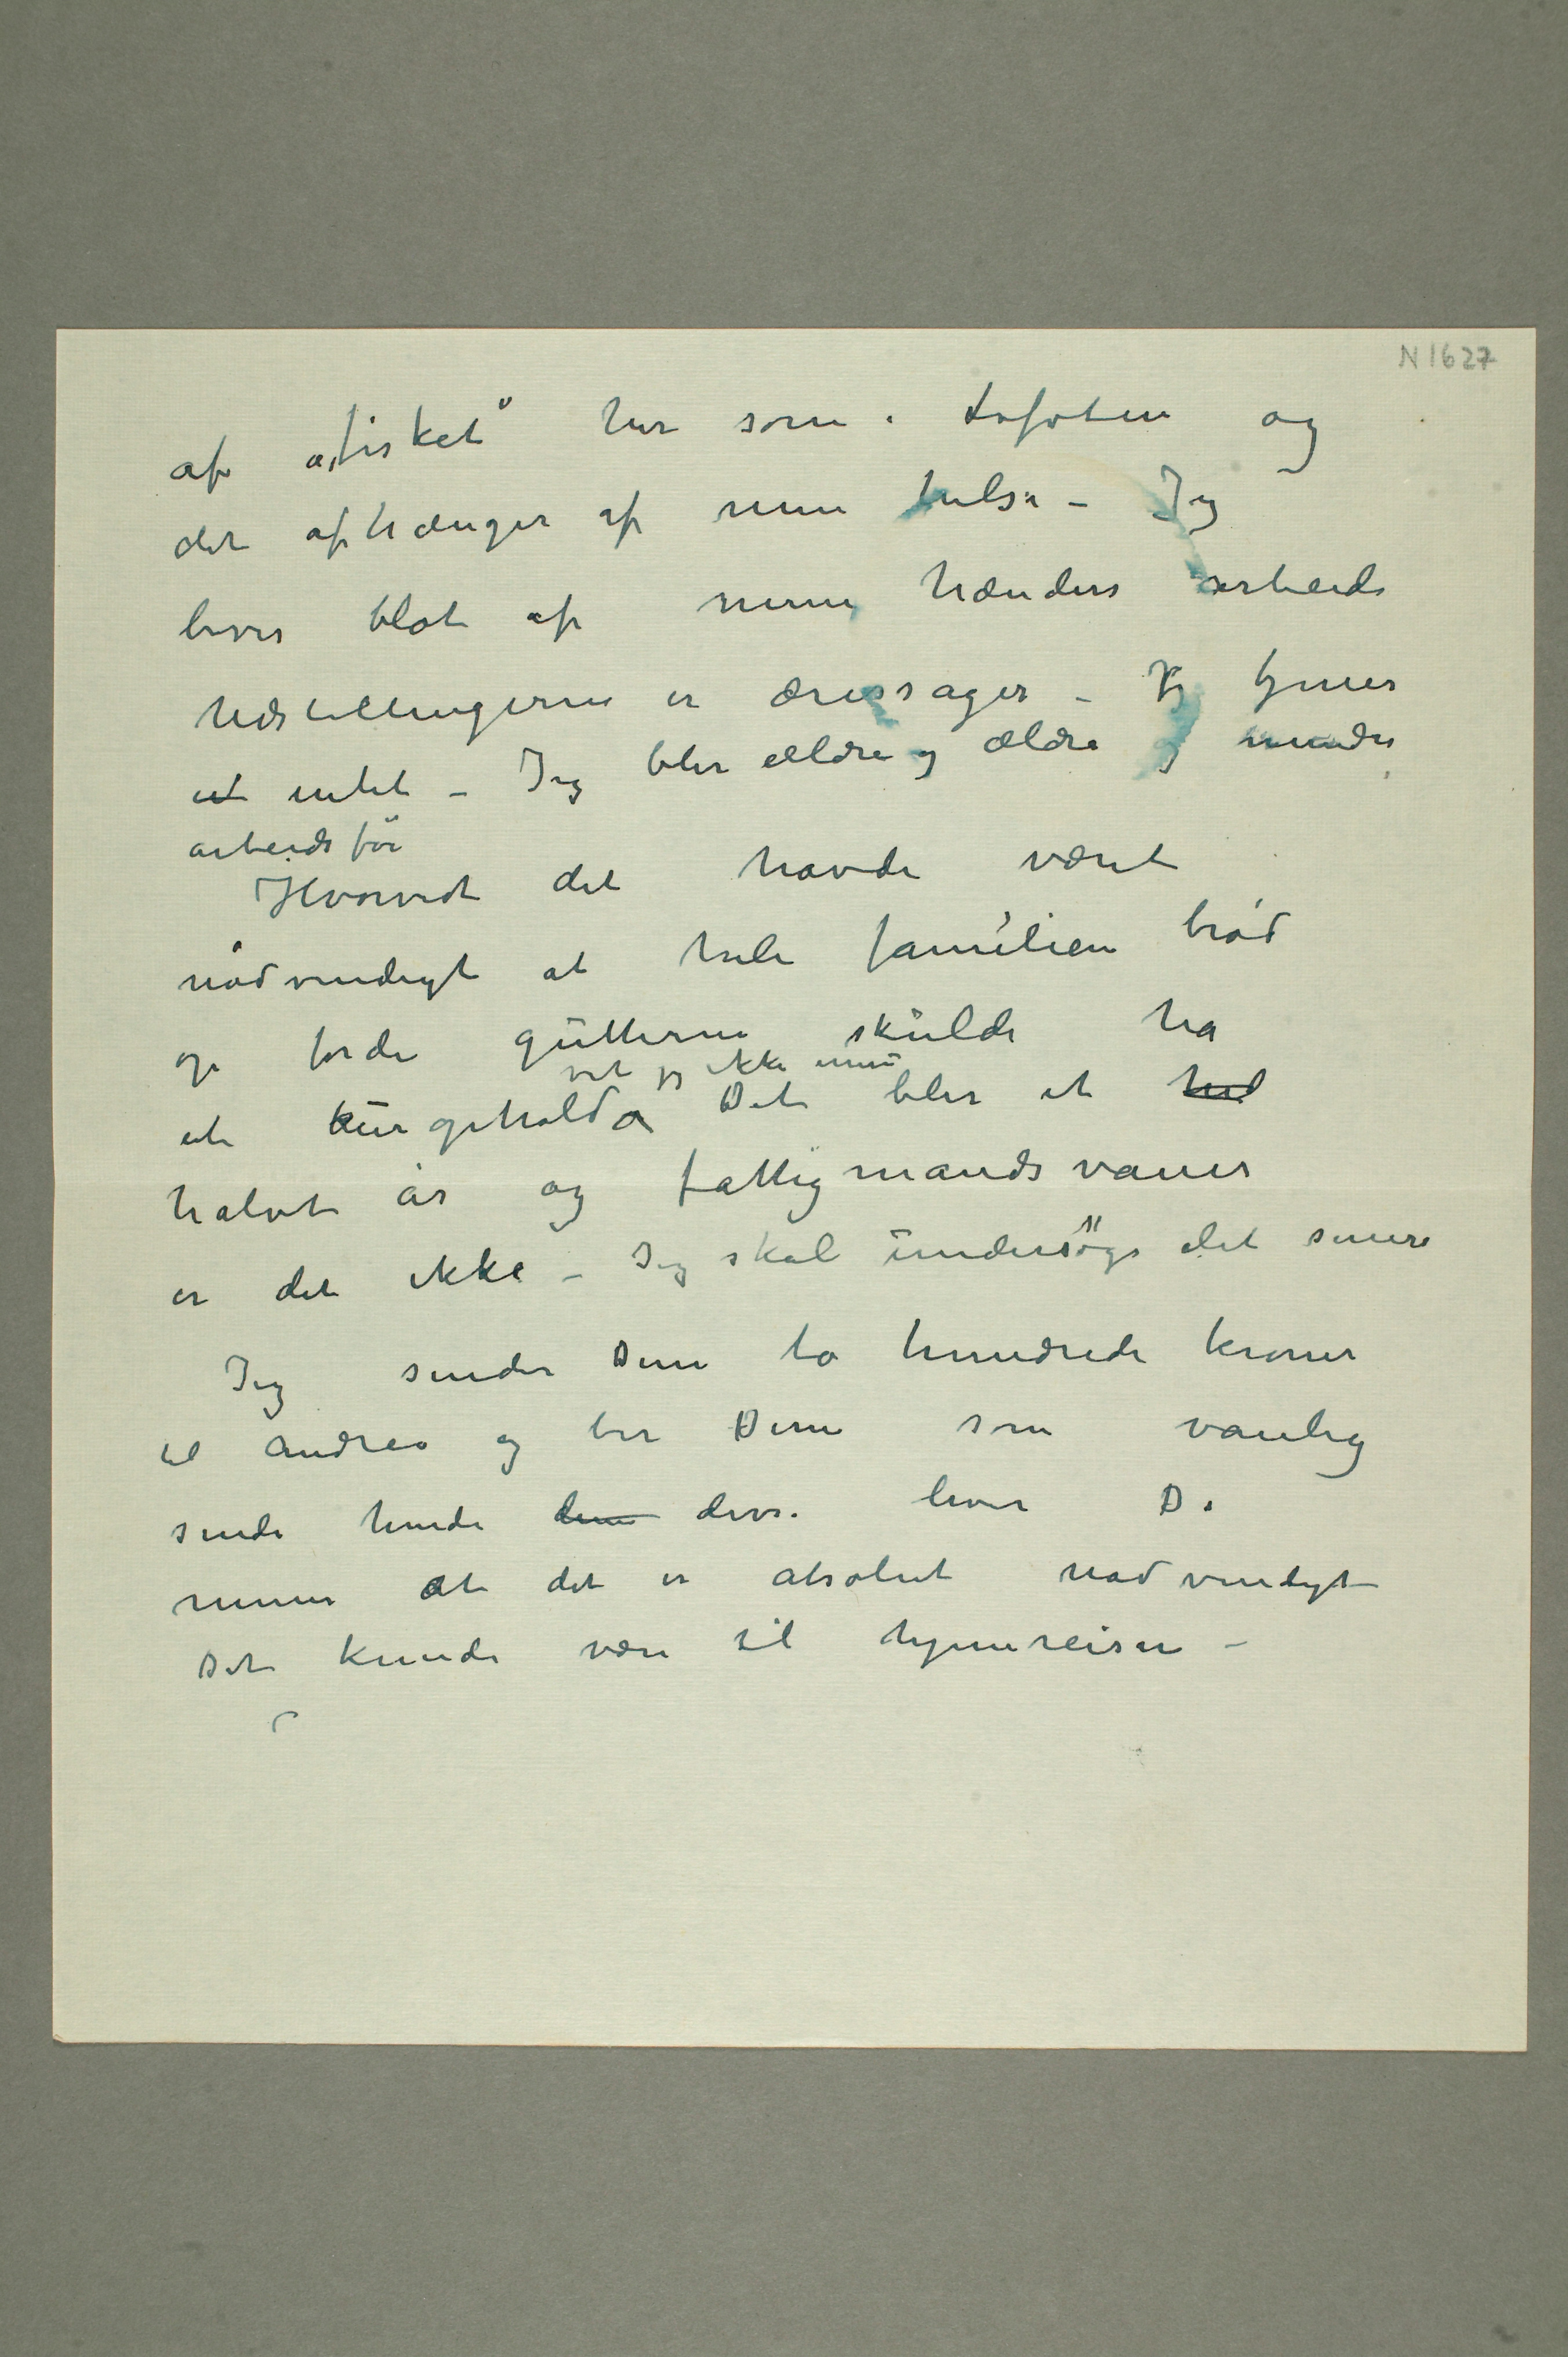 N 1627
af „fisket“ her som i Lofoten og
det afhænger af min helse – Jeg
lever blot af mine hænders arbeide
Udstillingerne er æressager – Jeg tjener
et intet – Jeg blir ældre og ældre og mindre
arbeidsför
Hvorvidt det havde været
nødvendigt at hele familien brød
op fordi gutterne skulde ha
vet jeg ikke ennu
et kurophold Det blir et hel
halvt år og fattigmandsvaner
er det ikke – Jeg skal undersöge det senere
Jeg sender Dem to hundrede kroner
til Andrea og ber Dem som vanlig
sende hende dem ders. hvis De
mener at det er absolut nødvendigt
Det kunde være til hjemreisen –